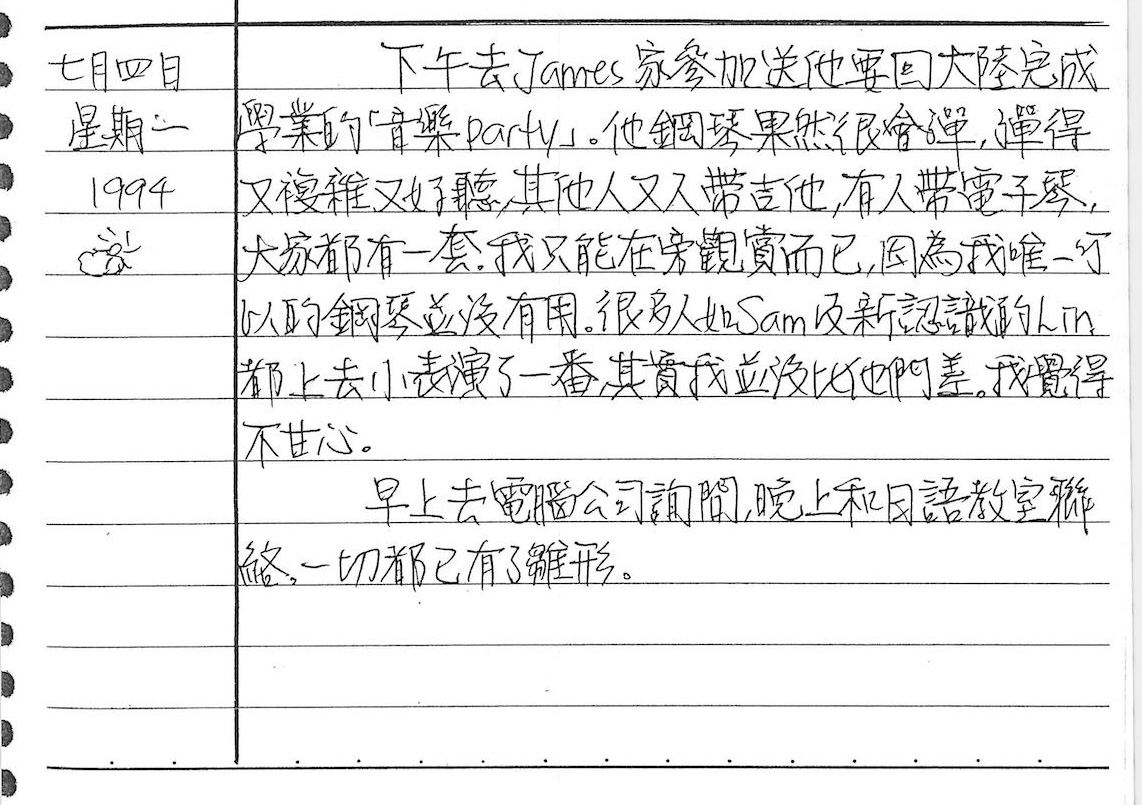 七月四日
星期一
1994
下午去James家參加送他要回大陸完成
學業的「音樂party」。他鋼琴果然很會彈,彈得
又複雜又好聽,其他人又又帶吉他,有人帶電子琴,
大家都有一套.我只能在旁觀賞而已,因為我唯一可
以的鋼琴並沒有用。很多人如Sam及新認識的Lin
都上去小表演了一番,其實我並沒比他門差。我覺得
不甘心。
早上去電腦公司詢問,晚上和日語教室聯
絡。一切都已有了雛形。